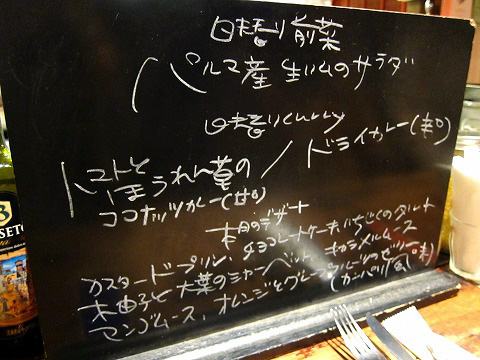 日替り前菜
パルマ産生ハムのサラダ
日替りcurry
トマトと
ほうれん草の
ココナッツカレー(甘口)
/ ドライカレー(辛口)
本日のデザート
カスタードプリン、チョコレートケーキ、いちじくのタルト
柚子と大葉のシャーベット、キャラメルムース
マンゴムース、オレンジとグレープフルーツのゼリー
(カンパリ風味)
SETO